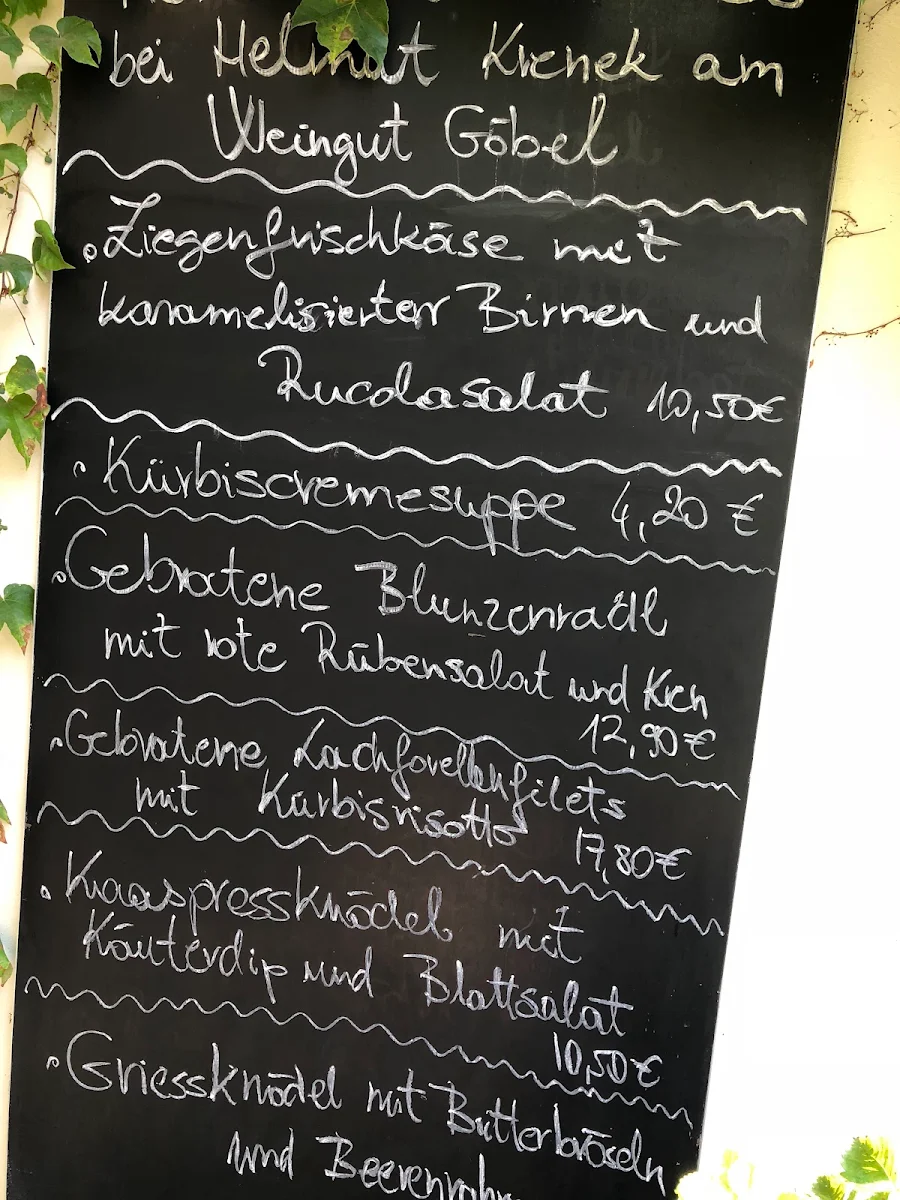 bei Helmut Krenek am
Weingut Göbel
Ziegenfrischkäse mit
karamelisierten Birnen und
Rucolasalat 10,50€
Kürbiscremesuppe 4,20 €
Gebratene Blunzenradl
mit rote Rübensalat und Kren
12,90€
Gebratene Lachforellenfilets
mit Kürbisrisotto 17,80€
Kaaspressknödel mit
Käuterdip und Blattsalat
10,50€
Griessknödel mit Butterbröseln
und